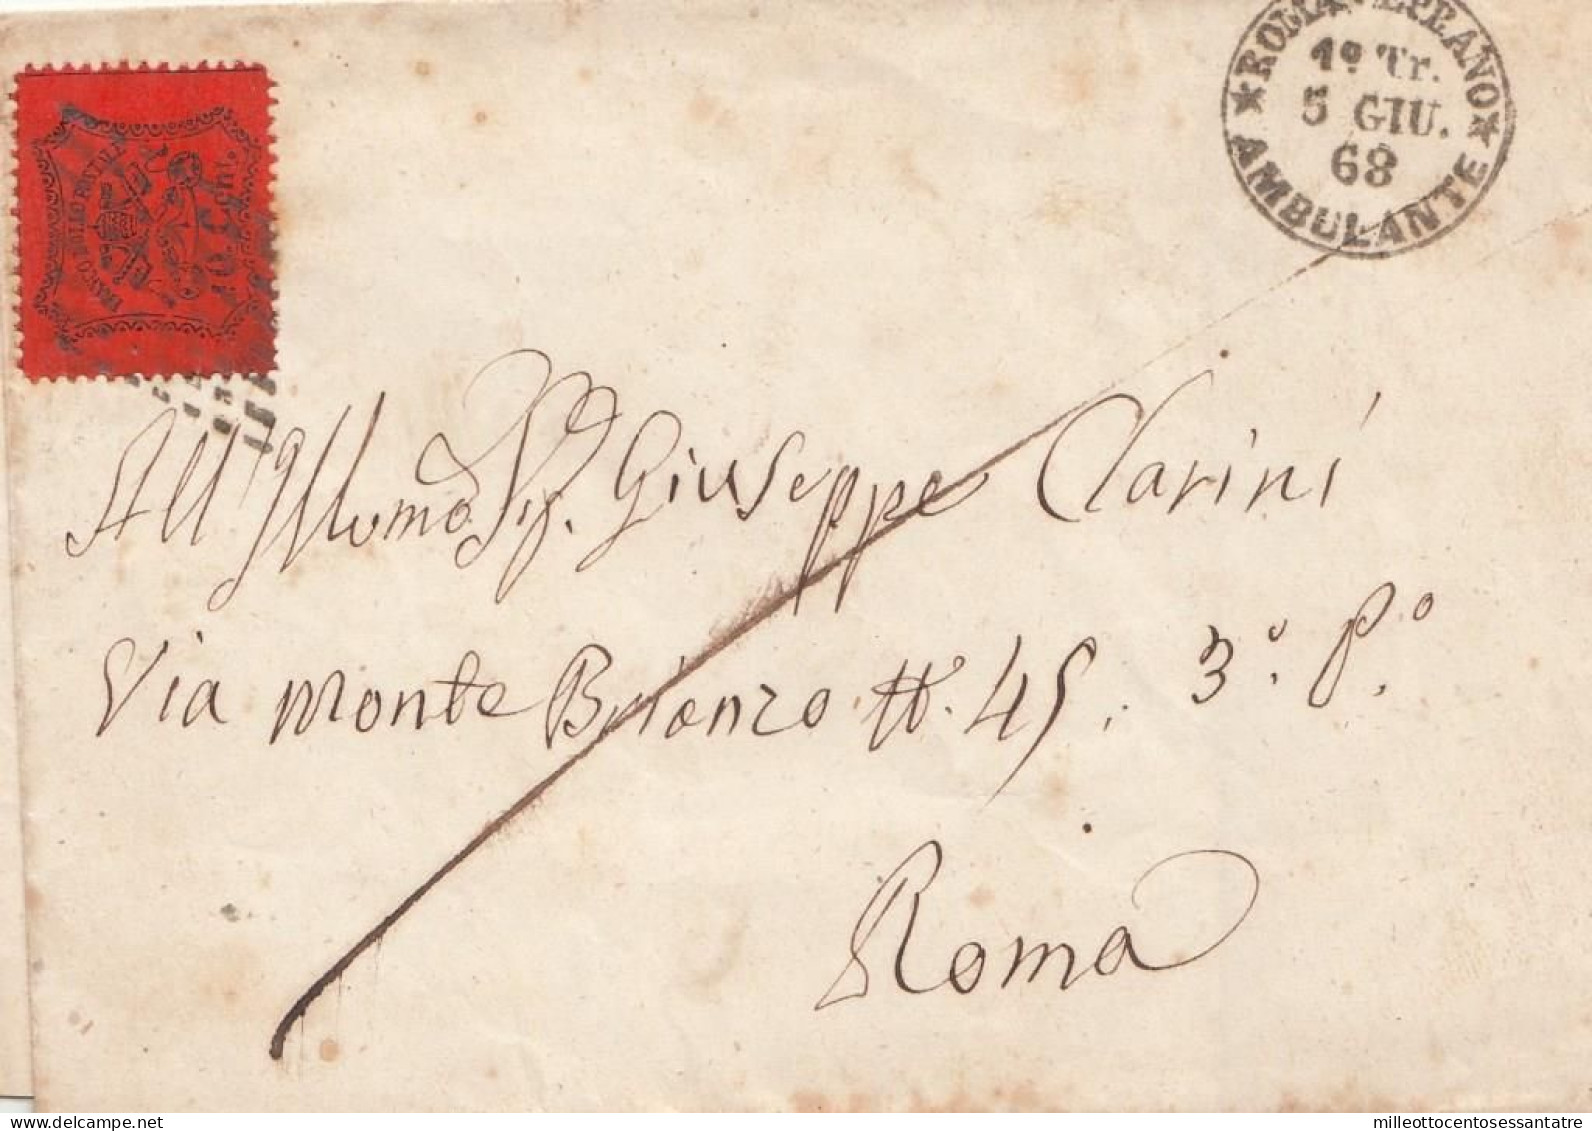 FRANCO BOLLO POSTALE
10 Cent.
ROMA CEPRANO
1º Tr.
5 GIU.
68
AMBULANTE
All' Illumo Sig. Giuseppe Clarini
Via Monte Brianzo N. 45. 3º. Pº.
Roma
milleottocentosessantatre